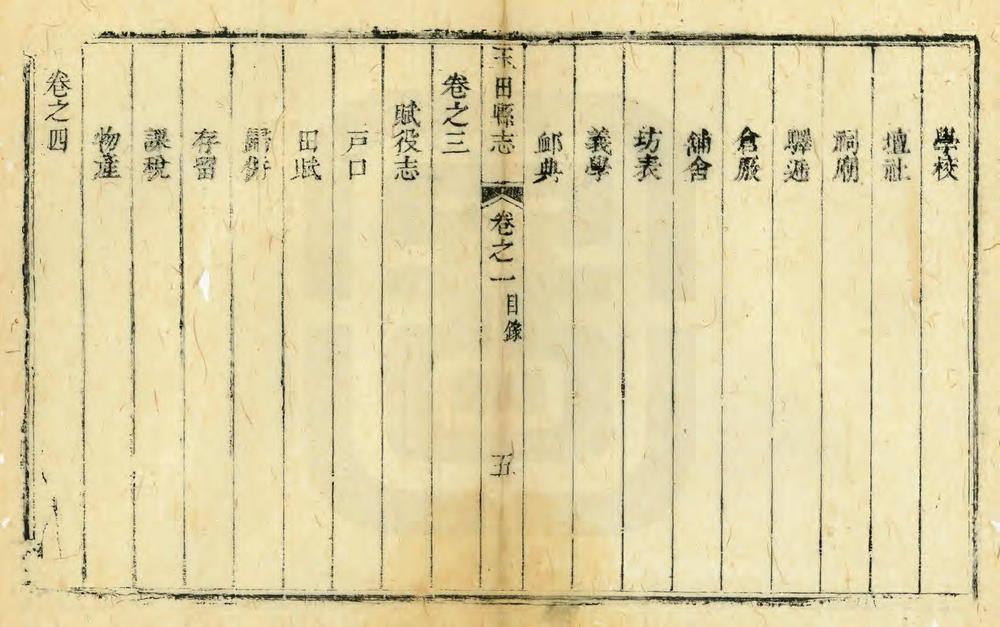 學校
壇社
祠廟
驛逓
倉厫
舖舍
坊表
義學
卹典
玉田縣志 卷之一 目錄 五
卷之三
賦役志
戸口
田賦
存留
課稅
物產
卷之四